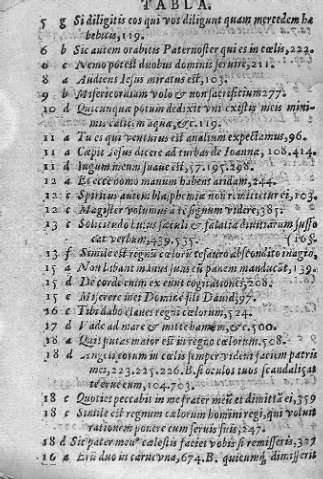 TABLA.
5 g Si diligitis eos qui vos diligunt quam mercedem ha
bebitis, 119.
6 b Sic autem orabitis Paternoster qui es in cœlis, 222.
6 c Nemo potest duobus dominis servire, 211.
8 a Audiens Iesus miratus est, 103.
9 b Misericordiam volo & non sacrificium 277.
10 d Quicunque potum dedixit vni ex istis meis mini-
mis calicem aquæ, &c. 119.
11 a Tu es qui venturus est an alium expectamus, 96.
11 a Cœpit Iesus dicere ad turbas de Ioanna, 108.414.
11 d Iugum meum suave est, 57.195.298.
12 a Et ecce homo manum habens aridam, 244.
12 c Spiritus autem blasphemia non remittetur ei, 103.
12 c Magister volumus a te signum videre, 385.
13 c Solicitudo huius sæculi & falatia divitiarum suffo
cat verbum, 439.535. (165.
13 f Simile est regnum cœlorū tesauro abscondito in agro,
15 a Non labant manus suas cū panem manducāt, 139.
15 d De corde enim exeunt cogitationes, 208.
15 c Miserere mei Domine fili David, 97.
16 c Tibi dabo claves regni cœlorum, 524.
17 d Vade ad mare & mitte hamum, &c. 500.
18 a Quis putas maior est in regno cœlorum, 508.
18 d Angeli eorum in cœlis semper vident faciem patris
mei, 223.225.226. B. si oculus tuus scandaliçat
te erue eum, 104.703.
18 c Quoties peccabit in me frater meus et dimittā ei, 359
18 c Simile est regnum cœlorum homini regi, qui voluit
rationem ponere cum servis suis, 247.
18 d Sic pater meus cœlestis faciet vobis si remisseris, 329
19 a Erūt duo in carne vna, 674. B. quicumq; dimisserit